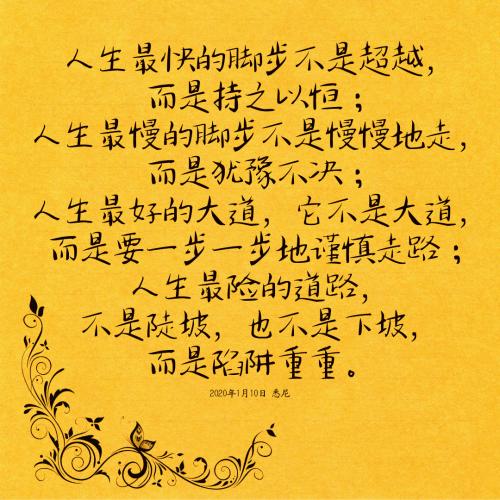 人生最快的脚步不是超越，
而是持之以恒；
人生最慢的脚步不是慢慢地走，
而是犹豫不决；
人生最好的大道，它不是大道，
而是要一步一步地谨慎走路；
人生最险的道路，
不是陡坡，也不是下坡，
而是陷阱重重。
2020年1月10日 悉尼